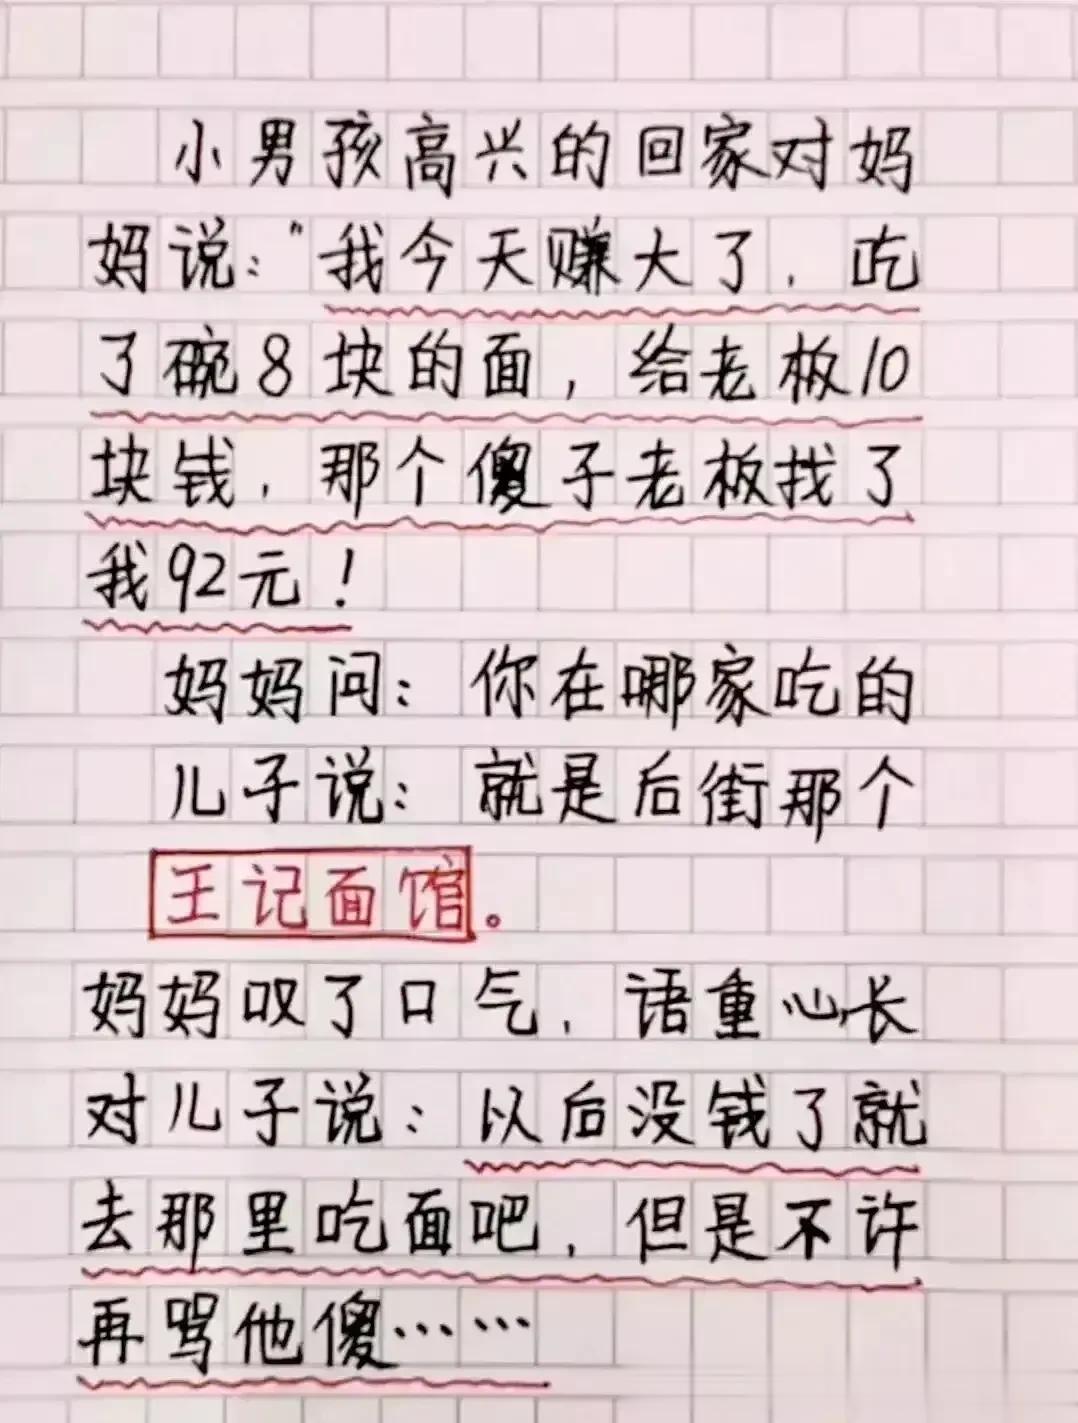 小男孩高兴的回家对妈
妈说："我今天赚大了，吃
了碗8块的面，给老板10
块钱，那个傻子老板找了
我92元！
妈妈问：你在哪家吃的
儿子说：就是后街那个
王记面馆。
妈妈叹了口气，语重心长
对儿子说：以后没钱了就
去那里吃面吧，但是不许
再骂他傻……